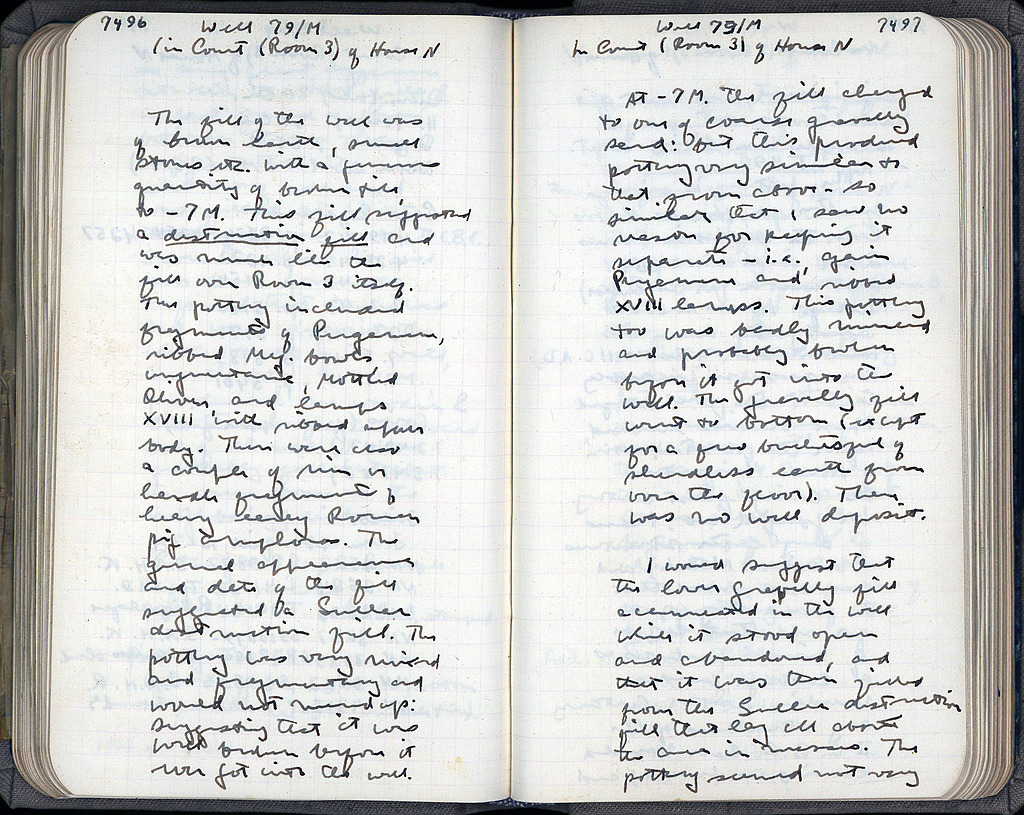 7496
Well 79/M
(in Court (Room 3) of House N
The fill of the well was
of brown earth, small
stones etc. with a
quantity of broken tile
to -7 M. This fill suggested
a destruction fill and
was much like the
fill over Room 3 itself.
The pottery included
fragments of Pergamene,
ribbed Meg. bowls
unguentaria, Mottled
and lamps
XVIII with ribbed upper
body. There were also
a couple of rim or
handle fragments of
heavy early Roman
pij amphoras. The
general appearance
and date of the fill
suggested a Sullan
destruction fill. The
pottery was very mixed
and fragmentary and
would not mend up:
suggesting that it was
well broken before it
ever got into the well.
7497
Well 79/M
In Court (Room 3) of House N
At -7 M. the fill changed
to one of coarse gravelly
sand: but this produced
pottery very similar to
that from above - so
similar that I saw no
reason for keeping it
separate - i.e., again
Pergamene and ribbed
XVIII lamps. This pottery
too was badly mixed
and probably broken
before it got into the
well. The gravelly fill
went to bottom (except
for a few basketsful of
sherdless earth from
over the floor). There
was no well deposit.
I would suggest that
the lower gravelly fill
accumulated in the well
while it stood open
and abandoned, and
that it was then filled
from the Sullan destruction
fill that lay all about
the area in masses. The
pottery seemed not very